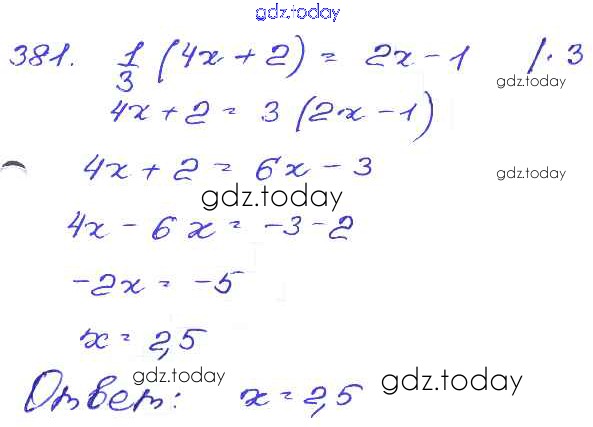 gdz.today
381. 1/3 (4x + 2) = 2x - 1 /· 3
gdz.today
4x + 2 = 3 (2x - 1)
4x + 2 = 6x - 3
gdz.today
gdz.today
4x - 6x = -3 - 2
-2x = -5
x = 2,5
gdz.today
gdz.today
Ответ: x = 2,5